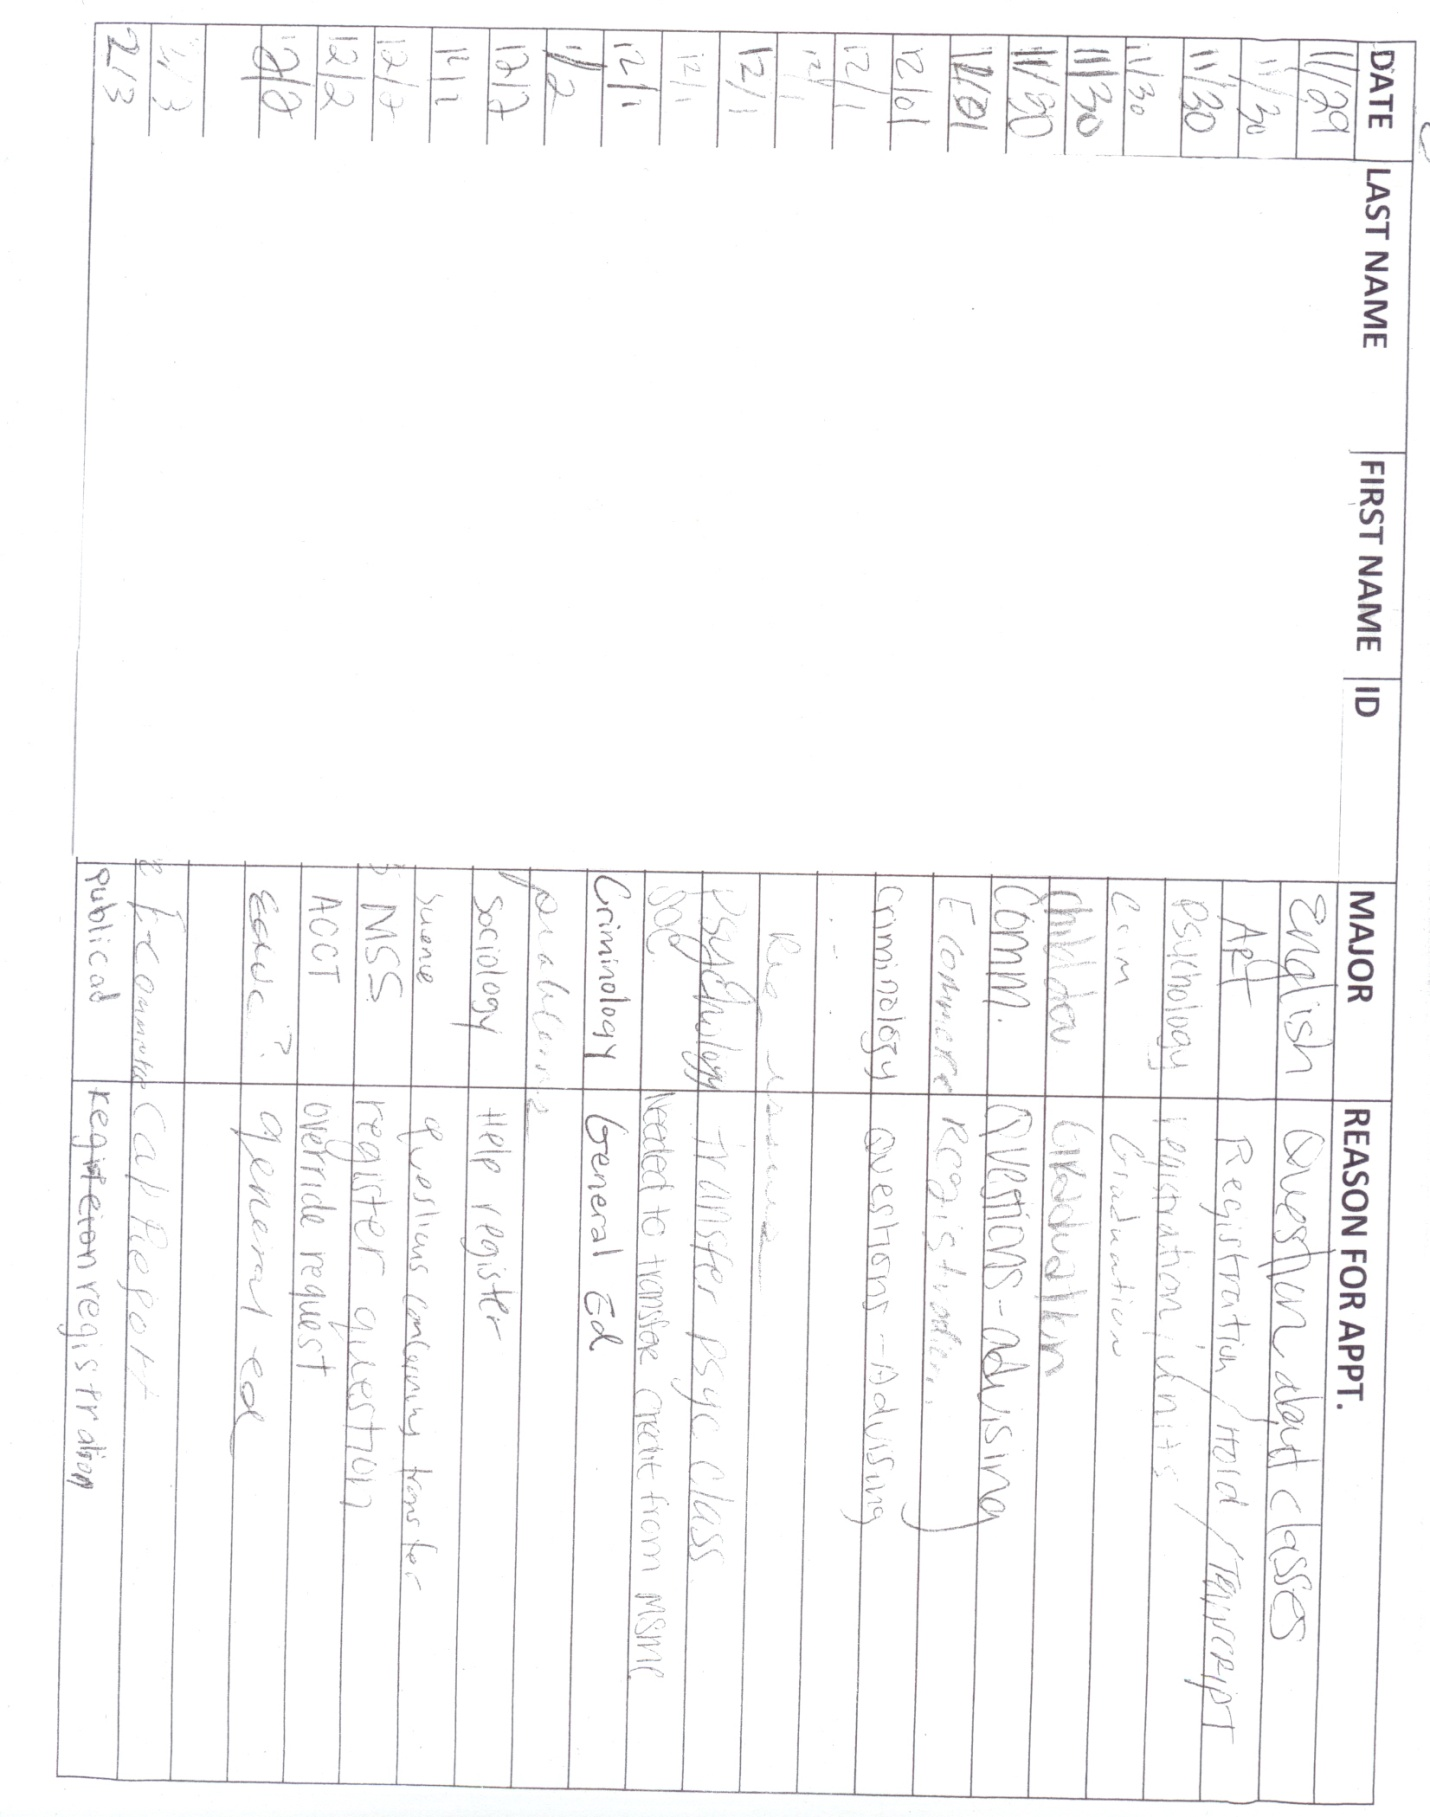 DATE LAST NAME FIRST NAME ID MAJOR REASON FOR APPT.
11/29 English Question about classes
11/30 ART Registration / Hold / Transcript
11/30 Psychology registration / Units
11/30 Crim Graduation
11/30 Graduation
11/30 Comm. Questions - advising
12/01 Ecommerce Registration
12/01 Criminology Questions - Advising
12/1
12/1
12/1 Psychology transfer psyc class
12/1 Soc. Needed to transfer credit from MSMC
12/1 Criminology General Ed
11/2
12/2 Sociology Help register
12/2 questions concerning transfer
12/2 MSS register question
12/2 ACCT override request
12/2 general ed

E-Commerce Cap Report
2/3 publicad registration